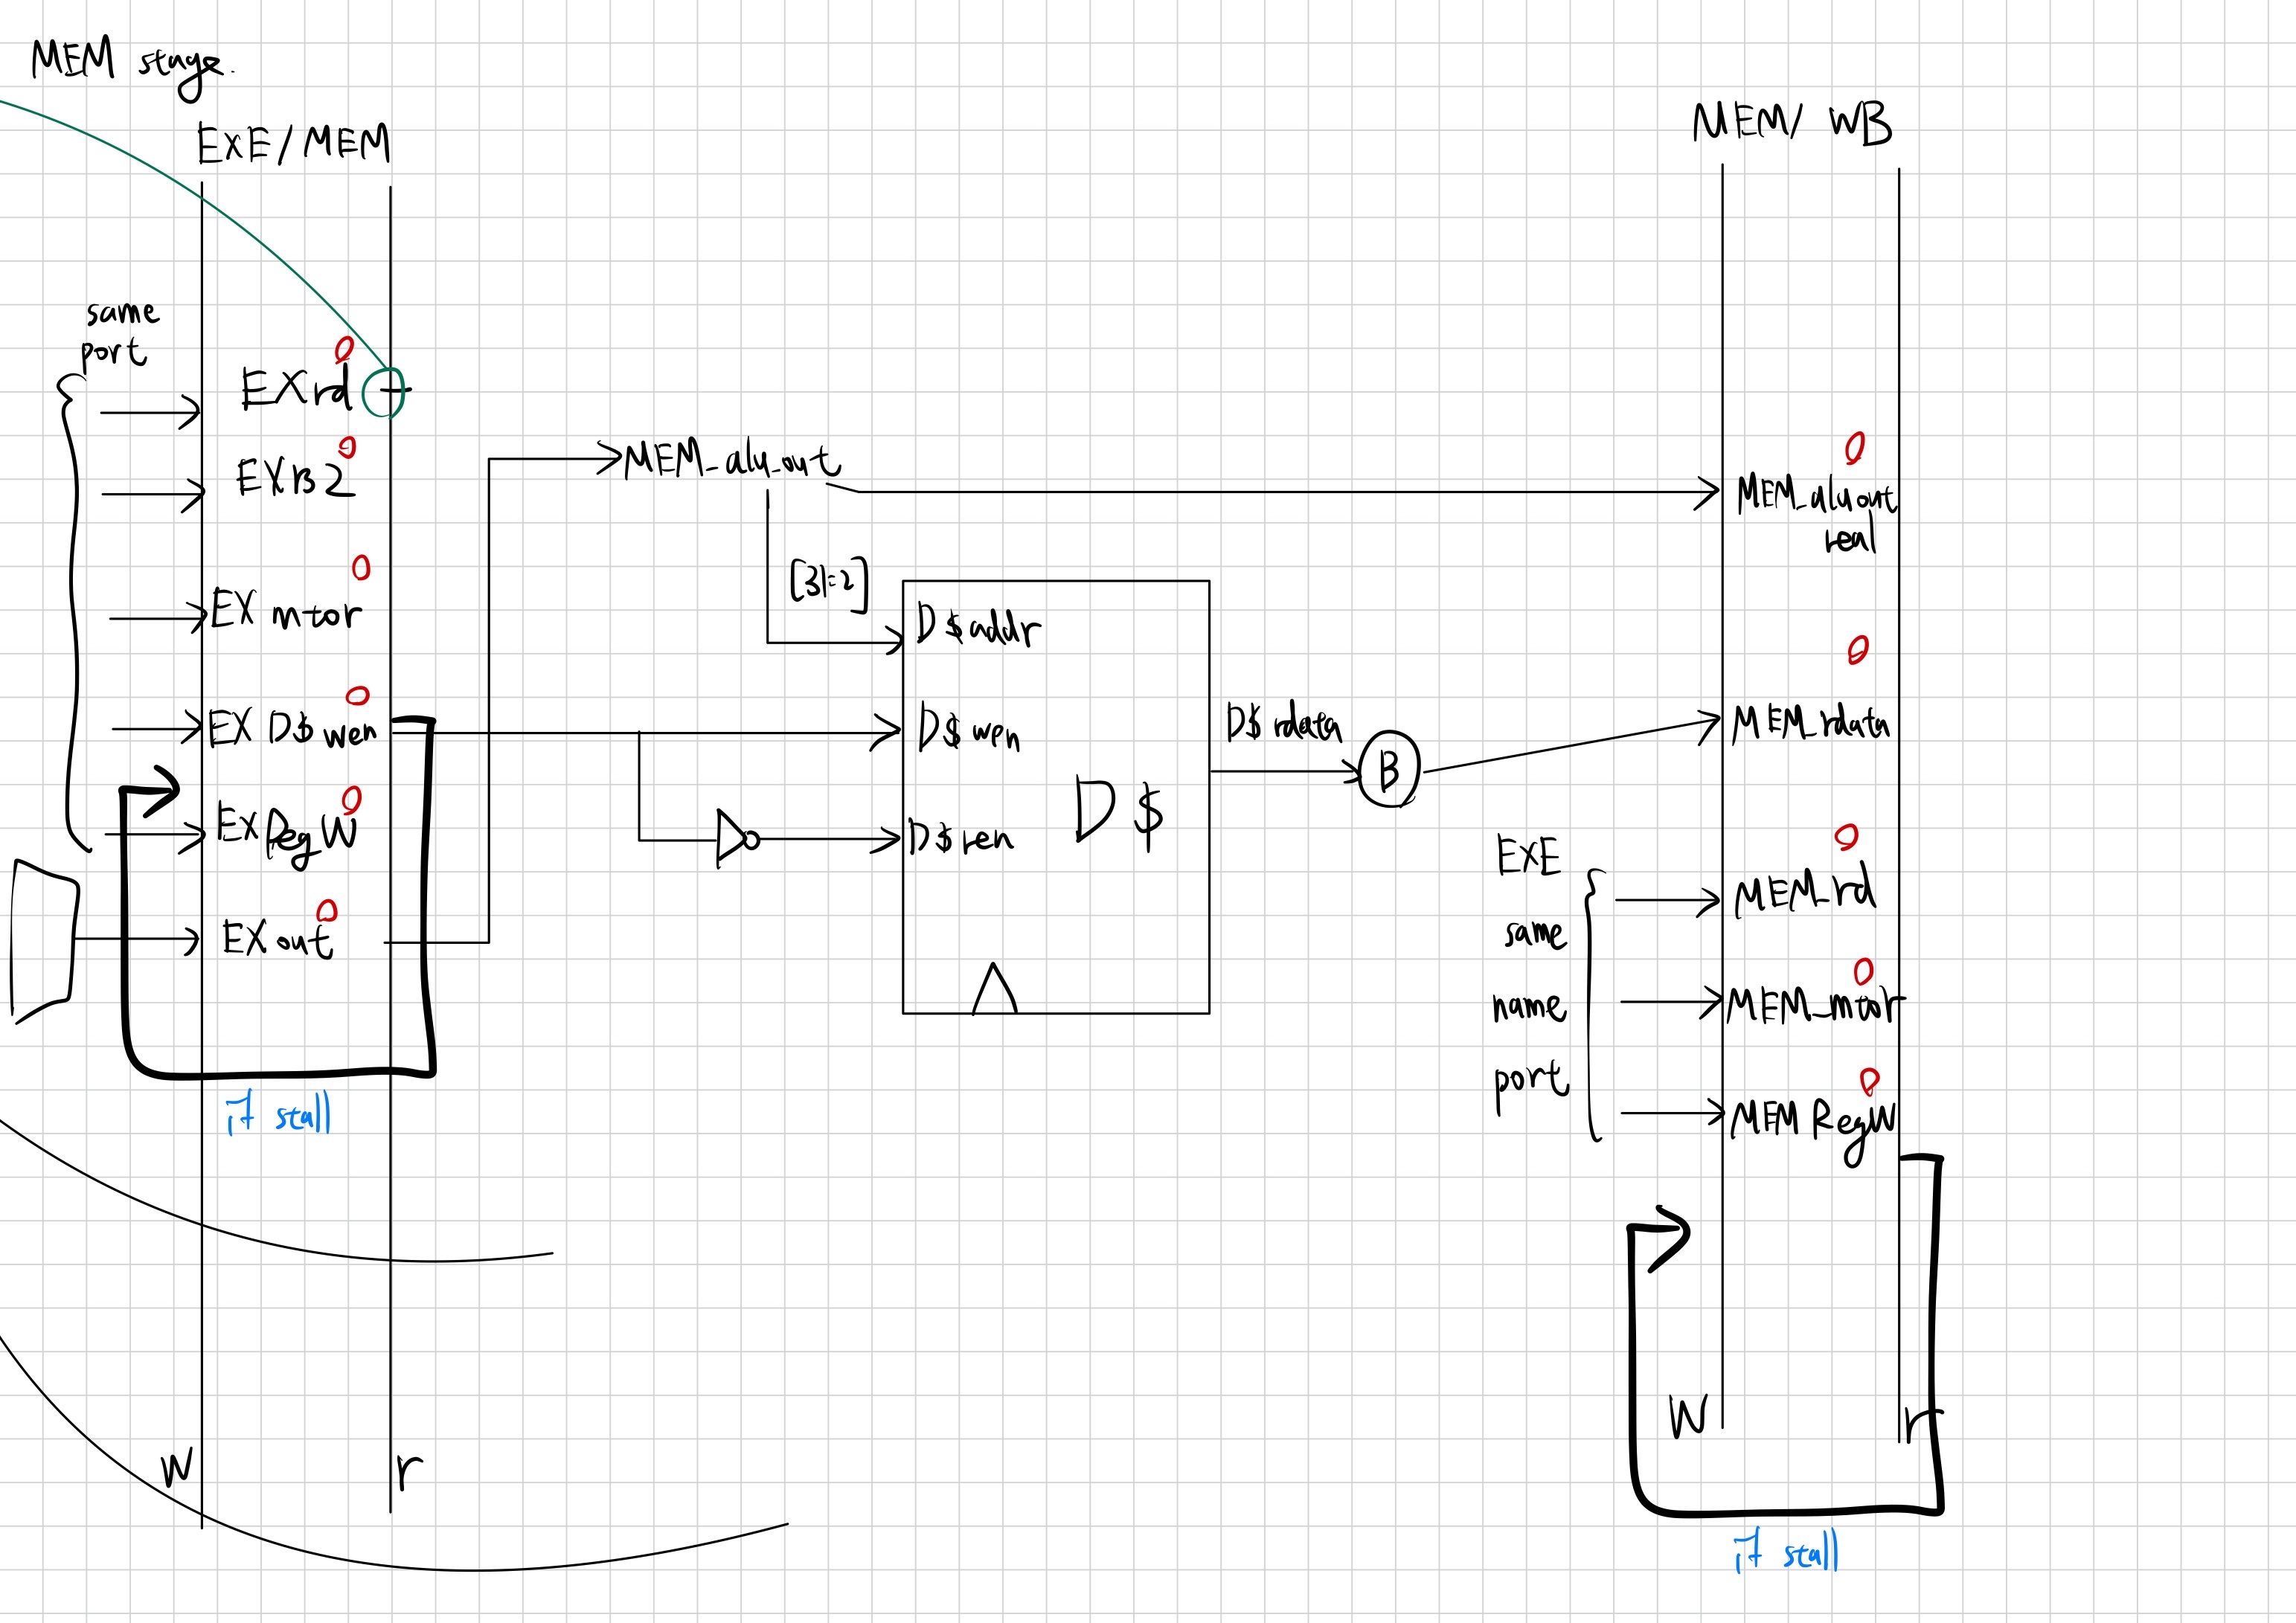 MEM stage.
EXE/MEM
MEM/ WB
same
port
0
EXrd
0
EXrs2
0
EX mtor
0
EX D$ wen
0
EX RegW
0
EXout
if stall
W
r
MEM_alu_out
[31:2]
D$addr
D$wen
D$ren
D$
D$ rdata
B
0
MEM_aluout
real
0
MEM_rdata
EXE
same
name
port
0
MEM_rd
0
MEM_mtor
0
MEM RegW
W
r
if stall